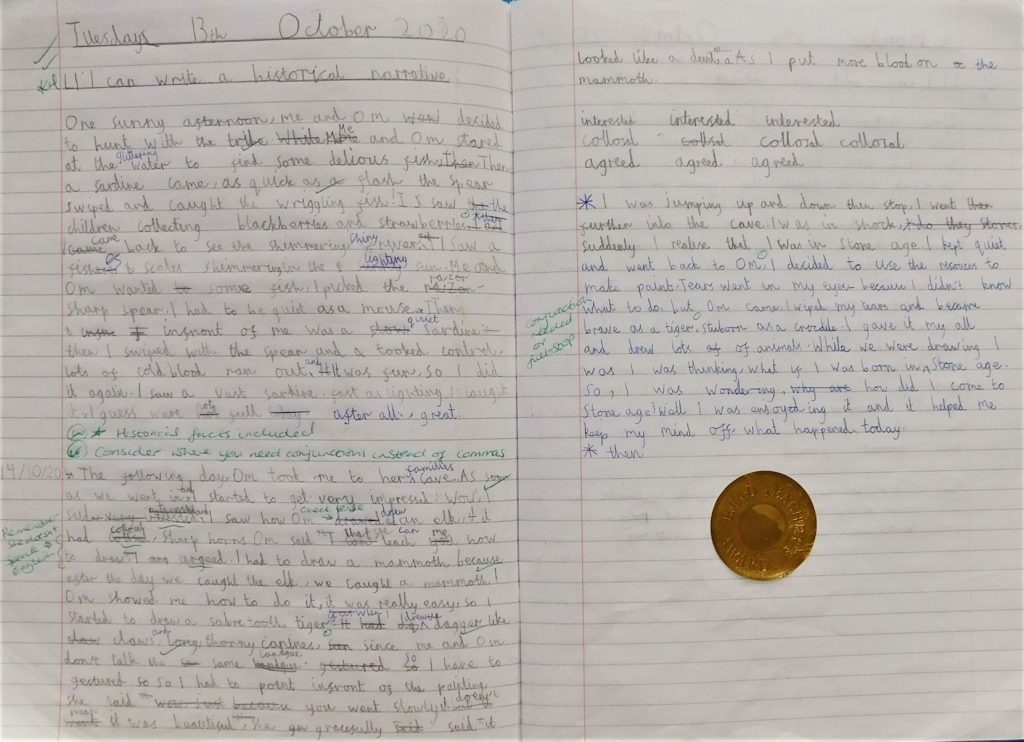 Tuesdays 13th October 2020
LI: I can write a historical narrative.
One sunny afternoon, me and Om decided
to hunt with the tribe. Me and Om stared
at the glittering water to find some delious fish. Then
a sardine came, as quick as a flash the spear
swiped and caught the wriggling fish! I saw the
children collecting blackberries and strawberries.
cave back to see the shimmering shiny river. I saw a
fish scales shimmering in the lighting sun. Me and
Om wanted some fish. I picked the razor
sharp spear. I had to be quiet as a mouse. Then
insront of me was a quiet sardine
then I swiped with the spear and a tooked control.
Lots of cold blood ran out, and it was fun. So I did
it again. I saw a vast sardine, fast as lighting! I caught
it. I guess were not full after all, great.
Historical facts included
Consider where you need conjunctions instead of commas
14/10/20
The following day, Om took me to her families cave. As
as we went in, I started to get very impressed! Wow, I
said. I saw how Om drew an elk, it
check tense
had collosol sheep horns Om said "I can teach me how
Remember she doesn't speak English
to draw. I argeed. I had to draw a mammoth, because
after the day we caught the elk, we caught a mammoth!
Om showed me how to do it, it was really easy, so I
started to draw a sabretooth tiger. dagger like
claws, and Long thorny canines, since me and Om
don't talk the same langue. so I have to
gestured so so I had to point insront of the painting
she said you went slowly
it was beautiful", she gracefully said "it
looked like a devil". As I put more blood on the
mammoth.
interested interested interested
collosol collosol collosol collosol
agreed agreed agreed
* I was jumping up and down then stop. I went
further into the cave. I was in shock,
suddenly I realise that I was in stone age. I kept quiet
and went back to Om. I decided to use the resorces to
make paint. Tears went in my eyes because I didn't know
what to do. but Om came. I wiped my tears and became
conjunction needed or full-stop
brave as a tiger, stuborn as a crocdile. I gave it my all
and drew lots of of animals. While we were drawing I
was I was thinking, what if I was born in stone age.
So, I was wondering, how did I come to
stone age! Wall I was enjoyed ing it and it helped me
keep my mind off what happened today.
* then
HEAD TEACHER'S AWARD